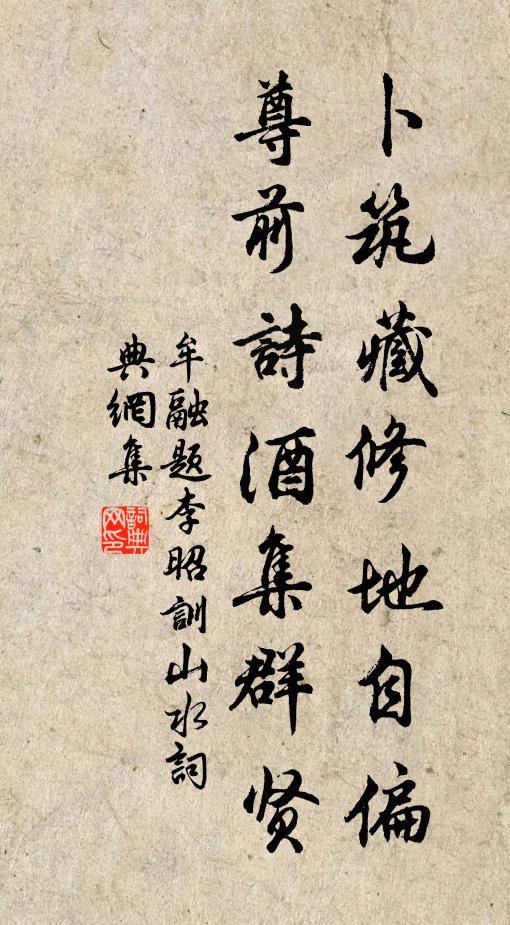 卜筑藏修地自偏
尊前詩酒集群贤
牟融题李昭訓山水詞
典網集
詞典网印